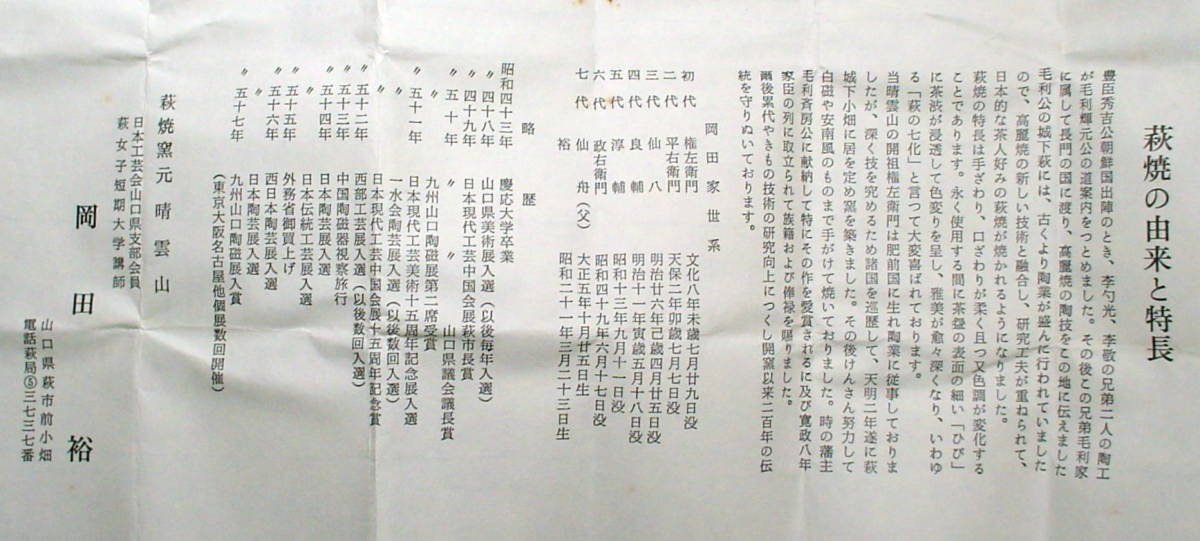 萩焼の由来と特長
豊臣秀吉公朝鮮国出陣のとき、李勺光、李敬の兄弟二人の陶工
が毛利輝元公の道案内をつとめました。その後この兄弟毛利家
に属して長門の国に渡り、高麗焼の陶技をこの地に伝えました
毛利公の城下萩には、古くより陶業が盛んに行われていました
ので、高麗焼の新しい技術と融合し、研究工夫が重ねられて、
日本的な茶人好みの萩焼が焼かれるようになりました。
萩焼の特長は手ざわり、口ざわりが柔く且つ又色調が変化する
ことであります。永く使用する間に茶盌の表面の細い「ひび」
に茶渋が浸透して色変りを呈し、雅美が愈々深くなり、いわゆ
る「萩の七化」と言つて大変喜ばれております。
当晴雲山の開祖権左衛門は肥前国に生れ陶業に従事しておりま
したが、深く技を究めるため諸国を巡歴して、天明二年遂に萩
城下小畑に居を定め窯を築きました。その後けんさん努力して
白磁や安南風のものまで手がけて焼いておりました。時の藩主
毛利斉房公に献納して特にその作を愛賞されるに及び寛政八年
家臣の列に取立られて族籍および俸禄を賜りました。
爾後累代やきもの技術の研究向上につくし開窯以来二百年の伝
統を守りぬいております。
岡田家世系
初代 権左衛門 文化八年未歳七月廿九日没
二代 平右衛門 天保二年卯歳七月七日没
三代 仙八 明治廿六年己歳四月廿五日没
四代 良輔 明治十一年寅歳五月十八日没
五代 淳輔 昭和十三年九月十一日没
六代 政右衛門 昭和四十九年六月十七日没
〃 仙舟(父) 大正五年十月廿五日生
七代 裕 昭和二十一年三月二十三日生
略歴
昭和四十三年 慶応大学卒業
〃 四十八年 山口県美術展入選(以後毎年入選)
〃 四十九年 日本現代工芸中国会展萩市長賞
〃 五十年 〃 〃 山口県議会議長賞
〃 九州山口陶磁展第二席受賞
〃 五十一年 日本現代工芸美術十五周年記念展入選
〃 一水会陶芸展入選(以後数回入選)
〃 日本現代工芸中国会展十五周年記念賞
〃 五十二年 西部工芸展入選(以後数回入選)
〃 五十三年 中国陶磁器視察旅行
〃 五十四年 日本陶芸展入選
〃 日本伝統工芸展入選
〃 五十五年 外務省御買上げ
〃 五十六年 西日本陶芸展入選
〃 日本陶芸展入選
〃 五十七年 九州山口陶磁展入賞
(東京大阪名古屋他個展数回開催)
萩焼窯元 晴雲山
日本工芸会山口県支部会員
萩女子短期大学講師
岡田 裕
山口県萩市前小畑
電話萩局⑤三七三七番